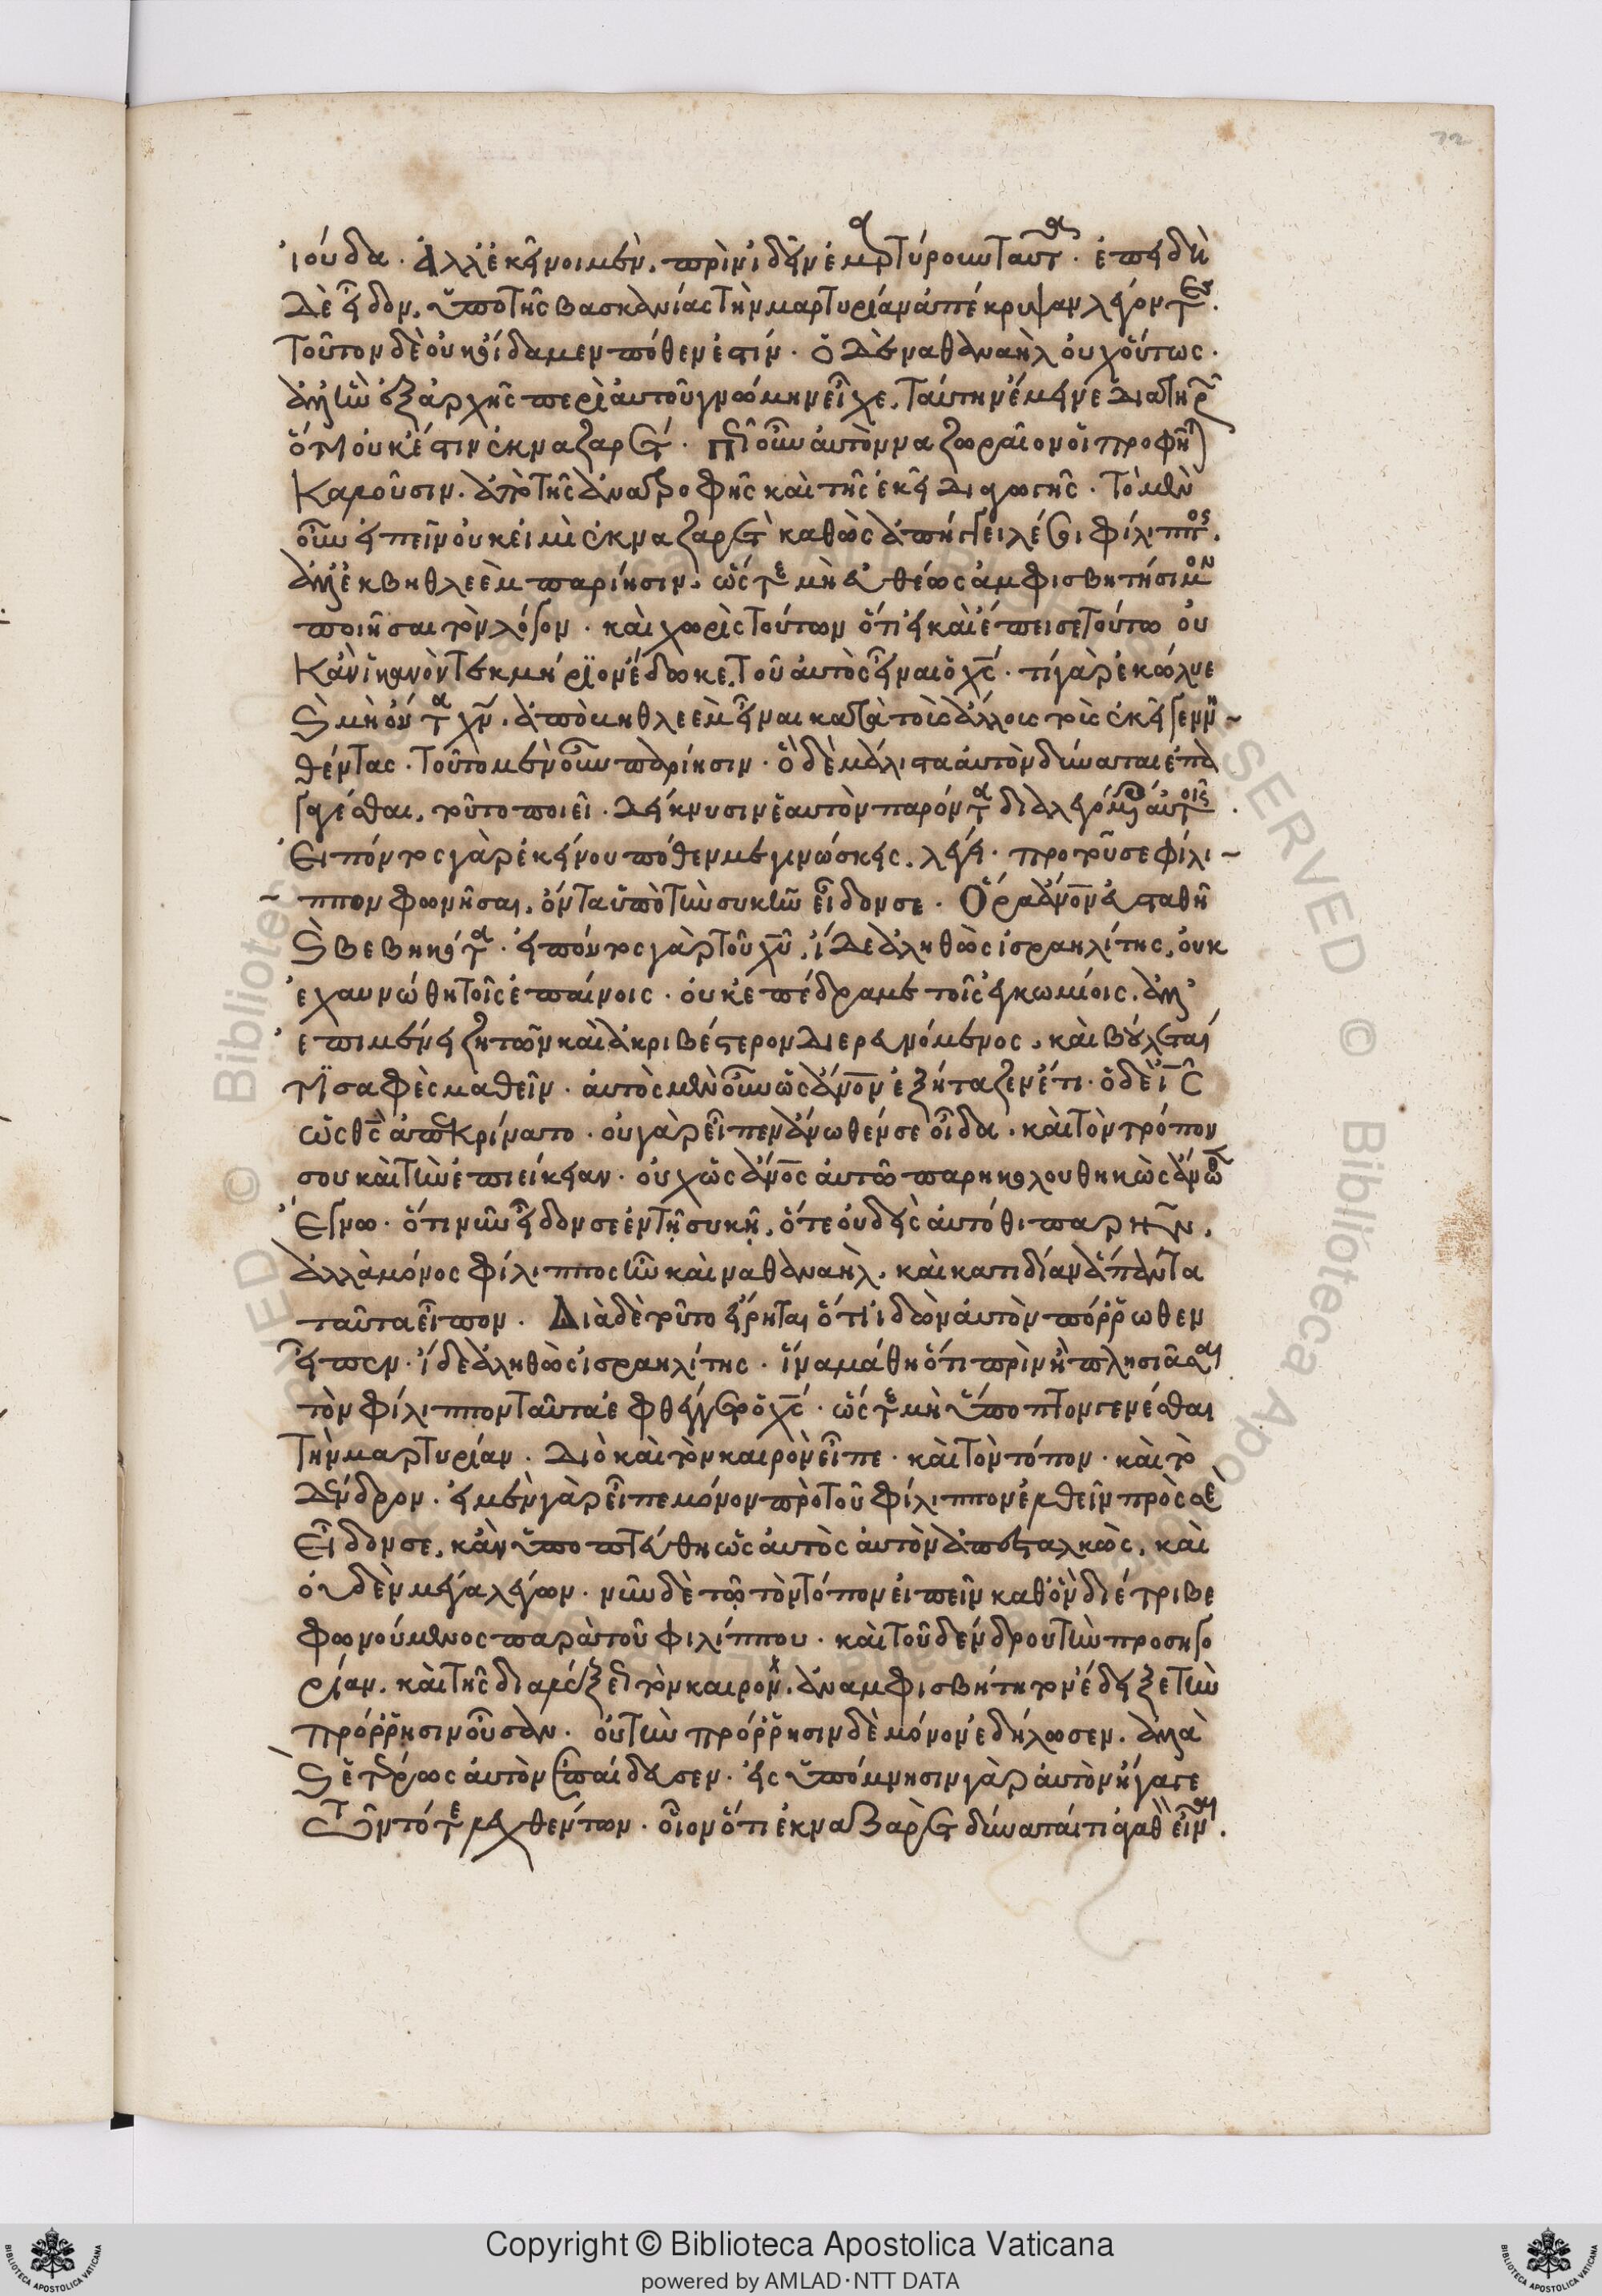 ἰούδα. ἀλλ' ἐκεῖνοι μὲν, πρὶν ἰδεῖν ἐμαρτύρουν ταῦτα. ἐπειδὴ
δὲ εἶδον, ὑπὸ τῆς βασκανίας τὴν μαρτυρίαν ἀπέκρυψαν λέγοντες.
τοῦτον δὲ οὐκ οἴδαμεν πόθεν ἐστίν. ὁ δὲ ναθαναὴλ οὐχ οὕτως.
ἀλλ' ἣν ἐξ ἀρχῆς περὶ αὐτοῦ γνώμην εἶχε, ταύτην ἔμεινε διατηρῶν
ὅτι οὐκ ἔστιν ἐκ ναζαρέτ. πῶς οὖν αὐτὸν ναζωραῖον οἱ προφῆται
καλοῦσιν. ἀπὸ τῆς ἀνατροφῆς καὶ τῆς ἐκεῖ διαγωγῆς. τὸ μὲν
οὖν εἰπεῖν οὐκ εἰμὶ ἐκ ναζαρὲτ καθὼς ἀπήγγειλέ σοι φίλιππος.
ἀλλ' ἐκ βηθλεὲμ παρίησιν, ὥστε μὴ εὐθέως ἀμφισβητήσιμον
ποιῆσαι τὸν λόγον. καὶ χωρὶς τούτων ὅτι εἰ καὶ ἔπεισε τούτω οὐ
κἂν ἱκανὸν τεκμήριον ἔδωκε, τοῦ αὐτὸς εἶναι ὁ χς. τί γὰρ ἐκώλυε
καὶ μὴ ὄντα χν, ἀπὸ βηθλεὲμ εἶναι κατὰ τοὺς ἄλλους τοὺς ἐκεῖ γεννη~
θέντας. τοῦτο μὲν οὖν παρίησιν. ὃ δὲ μάλιστα αὐτὸν δύναται ἐπα
γαγέσθαι, τοῦτο ποιεῖ. δείκνυσιν ἑαυτὸν παρόντα διαλεγομένοις αὐτοῖς.
εἰπόντος γὰρ ἐκείνου πόθεν με γινώσκεις, λέγει. πρὸ τοῦ σε φίλι~
~ππον φωνῆσαι, ὄντα ὑπὸ τὴν συκῆν εἶδον σε. ὅρα ἄνον εὐσταθῆ
καὶ βεβηκότα. εἰπόντος γὰρ τοῦ χυ, ἴδε ἀληθῶς ἰσραηλίτης, οὐκ
ἐχαυνώθη τοῖς ἐπαίνοις. οὐκ ἐπέδραμε τοῖς ἐγκωμίοις. ἀλλ'
ἐπιμένει ζητῶν καὶ ἀκριβέστερον διερευνόμενος, καὶ βούλεταί
τι σαφὲς μαθεῖν. αὐτὸς μὲν οὖν ὡς ἄνον ἐξήταζεν ἔτι. ὁ δὲ ις
ὡς θς ἀπεκρίνατο. οὐ γὰρ εἶπεν ἄνωθέν σε οἶδα, καὶ τὸν τρόπον
σου καὶ τὴν ἐπιείκειαν. οὐχ ὡς ἄνος αὐτῶ παρηκολουθηκὼς ἄνωθεν
ἔγνω. ὅτι νῦν εἶδον σε ἐν τῇ συκῇ, ὅτε οὐδεὶς αὐτόθι παρῆν,
ἀλλὰ μόνος φίλιππος ἦν καὶ ναθαναὴλ, καὶ κατιδίαν ἅπαντα
ταῦτα εἶπον. Διὰ δὲ τοῦτο εἴρηται ὅτι ἰδὼν αὐτὸν πόρρωθεν
εἶπεν. ἴδε ἀληθῶς ἰσραηλίτης. ἵνα μάθη ὅτι πρὶν ἢ πλησιάσαι
τὸν φίλιππον ταῦτα ἐφθέγγετο ὁ χς. ὥστε μὴ ὕποπτον γενέσθαι
τὴν μαρτυρίαν. διὸ καὶ τὸν καιρὸν εἶπε. καὶ τὸν τόπον. καὶ τὸ
δένδρον. εἰ μὲν γὰρ εἶπε μόνον πρὸ τοῦ φίλιππον ἐλθεῖν πρὸς σὲ
εἶδόν σε, κἂν ὑποπτεύθη ὡς αὐτὸς αὐτὸν ἀπεσταλκὼς, καὶ
οὐδὲν μέγα λέγων. νῦν δὲ τῷ τὸν τόπον εἰπεῖν καθ' ὃν διέτριβε
φωνούμενος παρὰ τοῦ φιλίππου. καὶ τοῦ δένδρου τὴν προσηγο
ρίαν, καὶ τῆς διαλέξεως τὸν καιρὸν, ἀναμφισβήτητον ἔδειξε τὴν
πρόρρησιν οὖσαν. οὐ τὴν πρόρρησιν δὲ μόνον ἐδήλωσεν, ἀλλὰ
καὶ ἑτέρως αὐτὸν ἐπαίδευσεν. εἰς ὑπόμνησιν γὰρ αὐτὸν ἤγαγε
τῶν τότε λεχθέντων. οἷον ὅτι ἐκ ναζαρὲτ δύναταί τι ἀγαθὸν εἶναι.